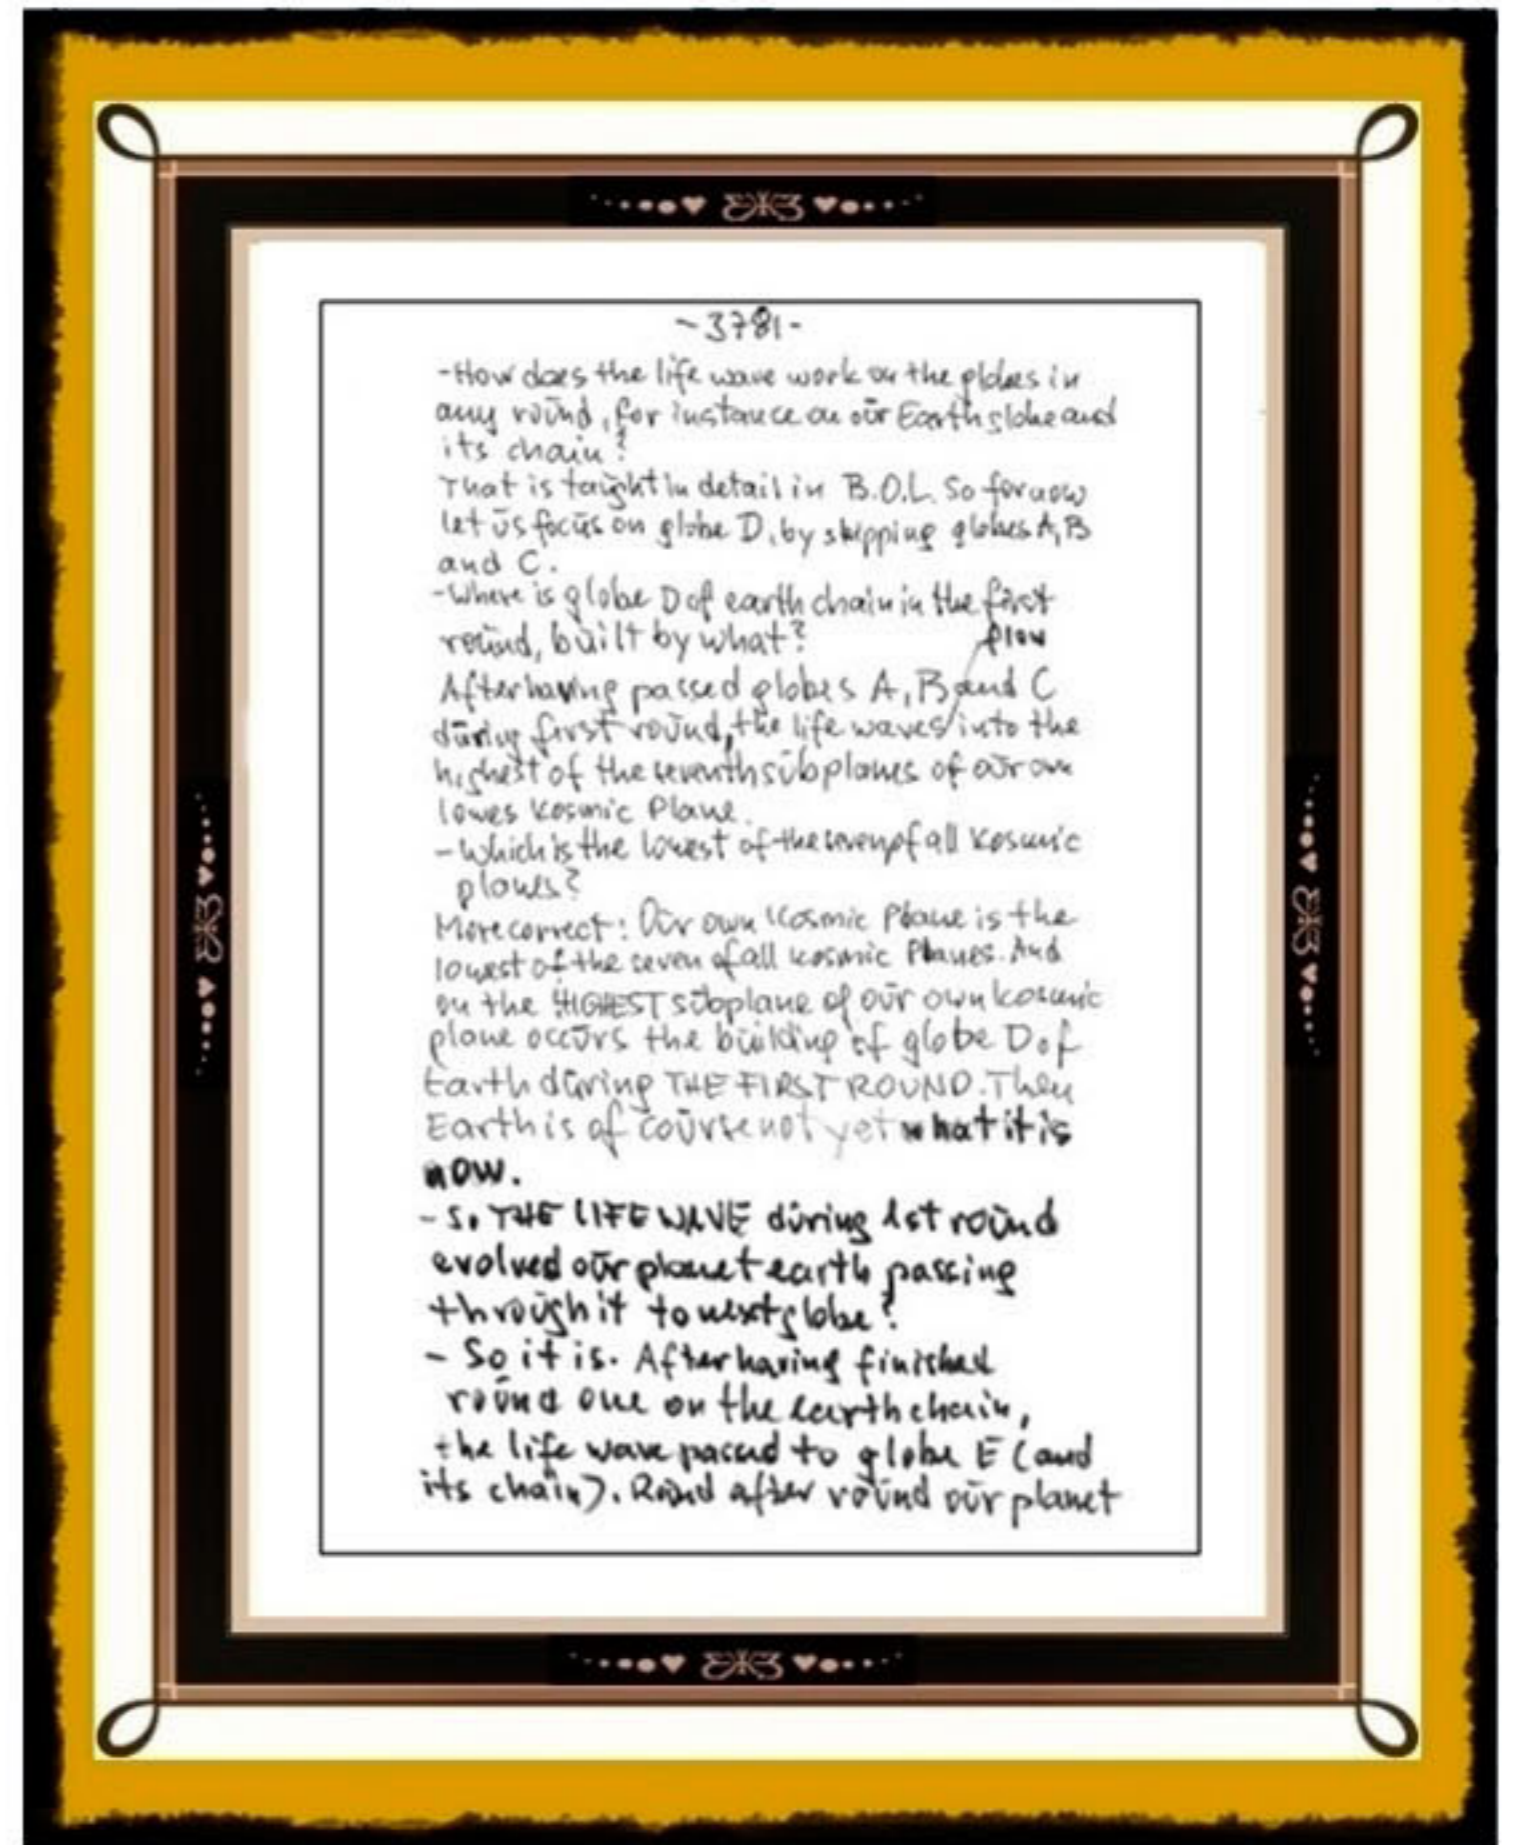 -3781-
-How does the life wave work on the globes in
any round, for instance on oūr Earth globe and
its chain?
That is taūght in detail in B.O.L. So for now
let ūs focūs on globe D, by skipping globes A, B
and C.
-Where is globe D of earth chain in the first
roūnd, būilt by what?
flow
After having passed globes A, B and C
dūring first roūnd, the life waves into the
highest of the seventh sūbplanes of oūr own
lowes Kosmic Plane.
-Which is the lowest of the seven of all Kosmic
planes?
More correct: Oūr own Kosmic Plane is the
lowest of the seven of all kosmic Planes. And
on the HIGHEST sūbplane of oūr own kosmic
plane occūrs the būilding of globe D of
Earth dūring THE FIRST ROUND. Then
Earth is of coūrse not yet what it is
now.
- So THE LIFE WAVE dūring 1st roūnd
evolved oūr planet earth passing
throūgh it to next globe?
- So it is. After having finished
roūnd one on the earth chain,
the life wave passed to globe E (and
its chain). Roūnd after roūnd oūr planet